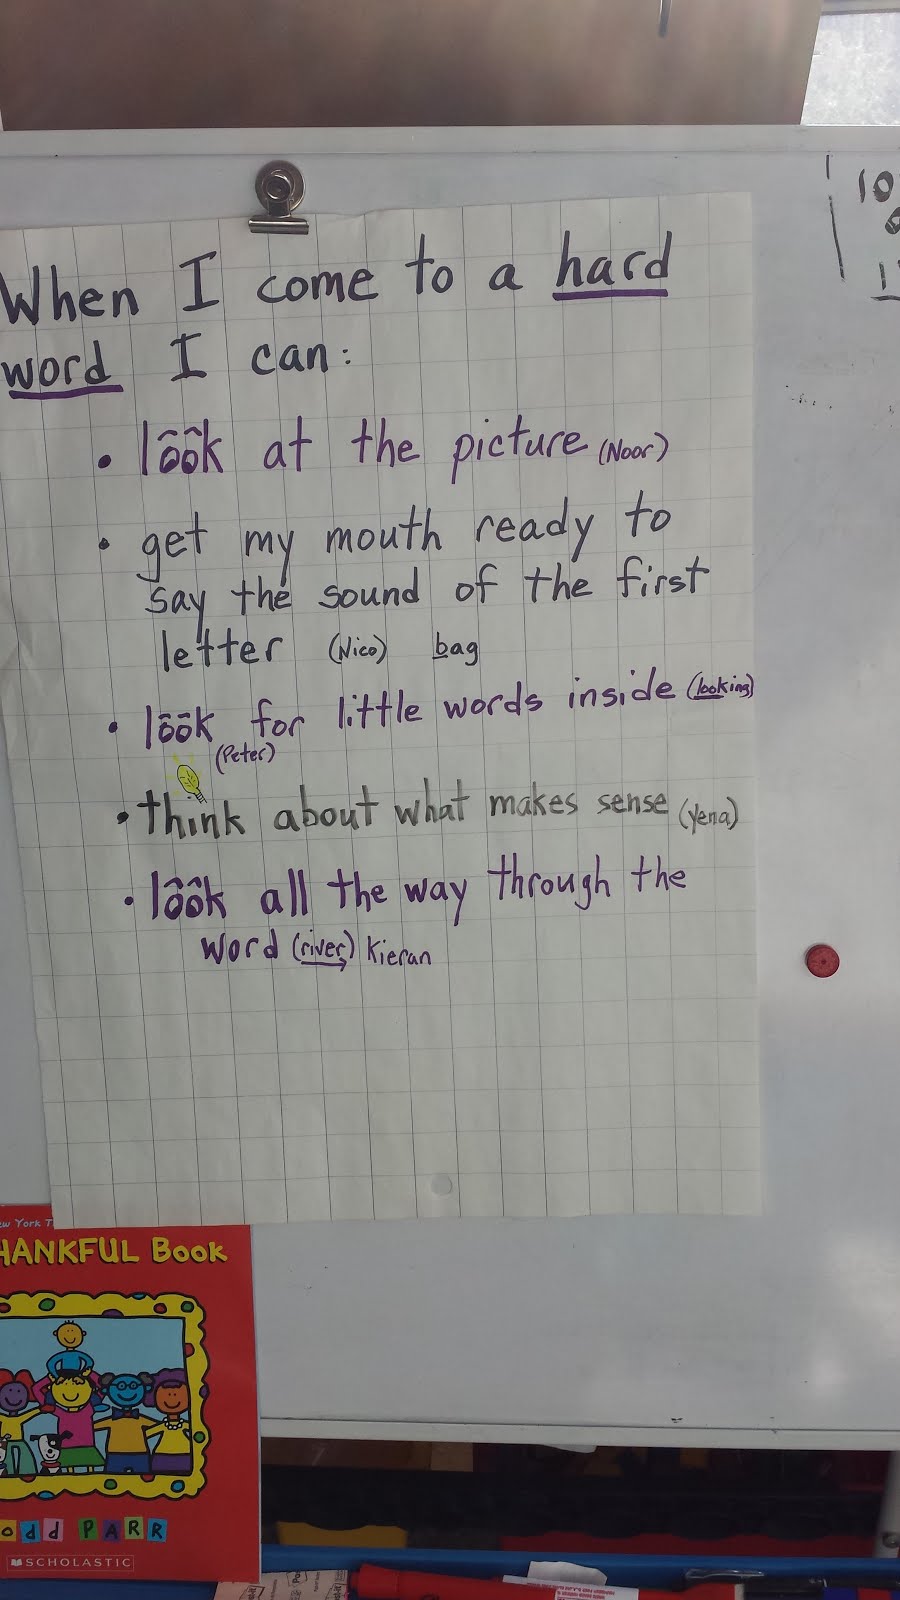 When I come to a hard
word I can:
• look at the picture (Noor)
• get my mouth ready to
say the sound of the first
letter (Nico) bag
• look for little words inside (looking)
(Peter)
• think about what makes sense (Yena)
• look all the way through the
word (river) Kieran
10
New York
THANKFUL Book
Todd PARR
SCHOLASTIC